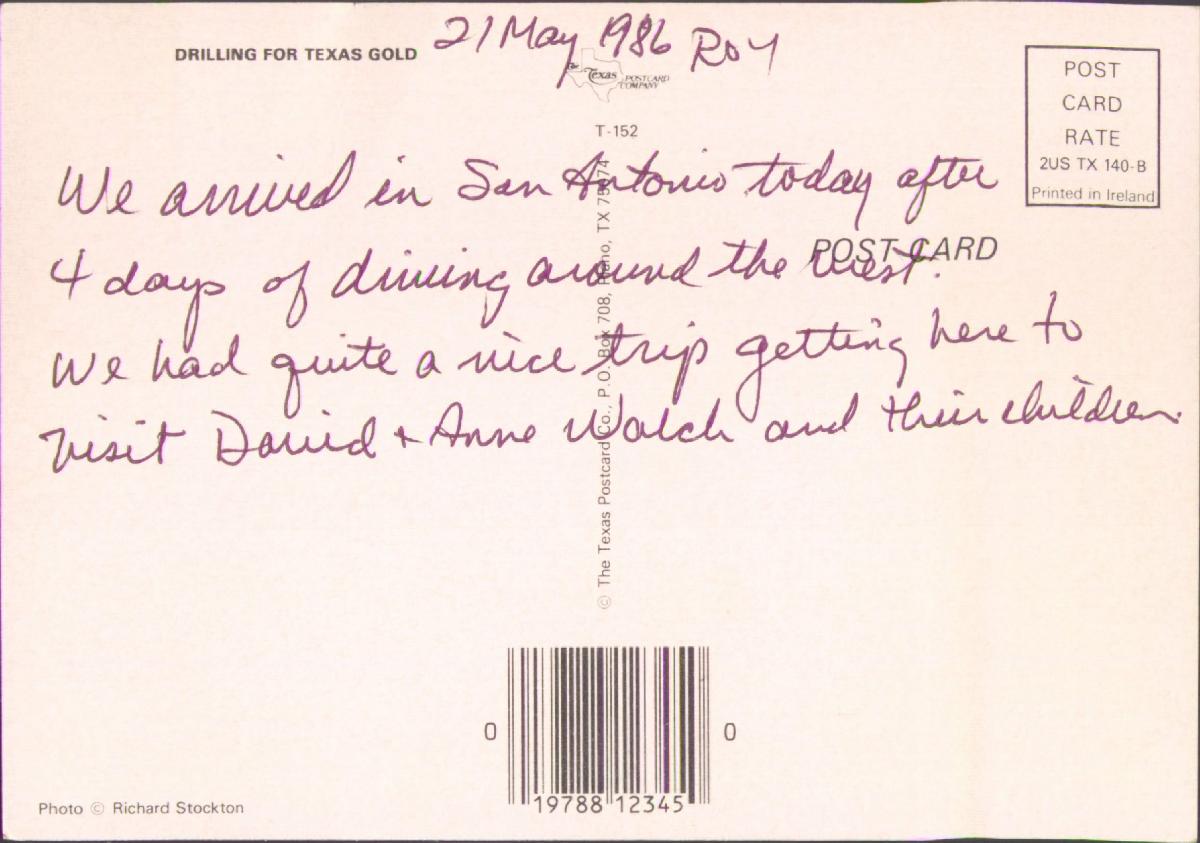 21 May 1986 Roy
DRILLING FOR TEXAS GOLD
The Texas POSTCARD COMPANY
T-152
POST
CARD
RATE
2US TX 140-B
Printed in Ireland
POST CARD
We arrived in San Antonio today after
4 days of driving around the West.
We had quite a nice trip getting here to
visit David + Anne Walch and their children.
© The Texas Postcard Co., P.O. Box 708, Plano, TX 75074
0 19788 12345 0
Photo © Richard Stockton